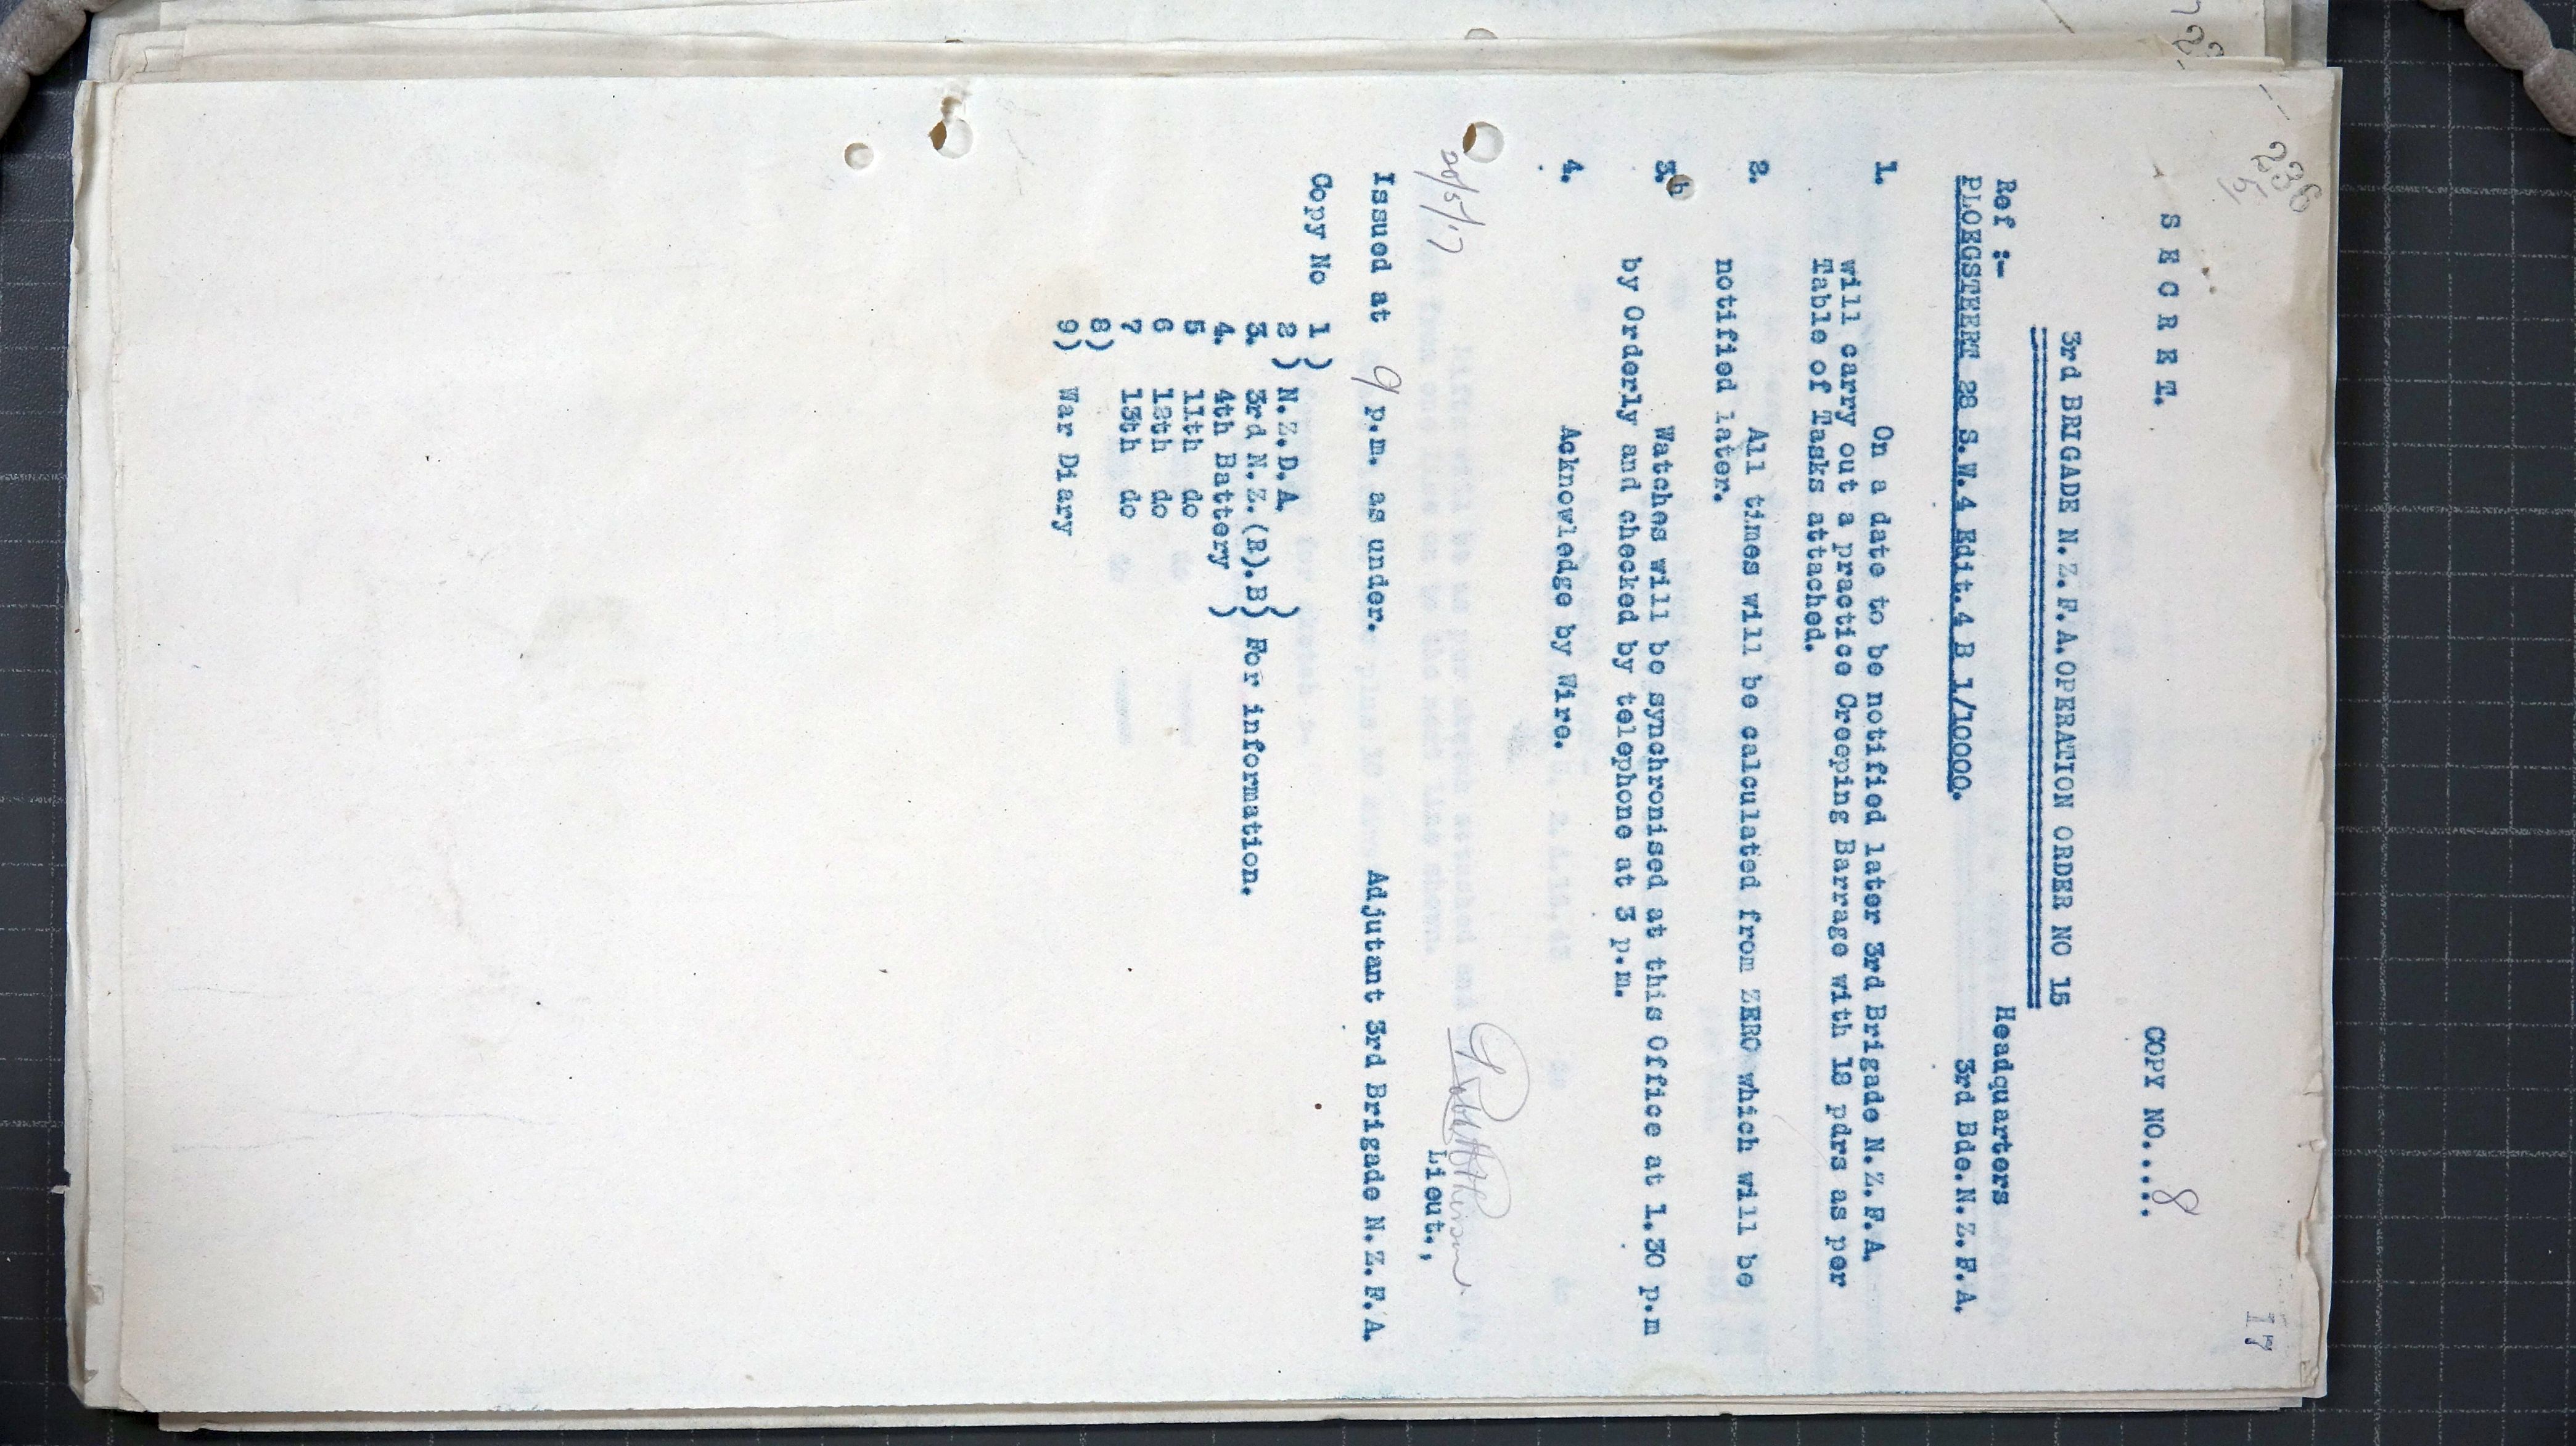 236
17
S E C R E T.
COPY NO.....8
3rd BRIGADE N.Z.F.A.OPERATION ORDER NO 15
Ref :- Headquarters
PLOEGSTEERT 28 S.W.4 Edit.4 B 1/10000. 3rd Bde.N.Z.F.A.
1. On a date to be notified later 3rd Brigade N.Z.F.A.
will carry out a practice Creeping Barrage with 18 pdrs as per
Table of Tasks attached.
2. All times will be calculated from ZERO which will be
notified later.
3. Watches will be synchronised at this Office at 1.30 p.m
by Orderly and checked by telephone at 3 p.m.
4. Acknowledge by Wire.
20/5/17
Lieut.,
Issued at 9 p.m. as under. Adjutant 3rd Brigade N.Z.F.A.
Copy No 1 )
2 ) N.Z.D.A )
3. 3rd N.Z.(R).B) For information.
4. 4th Battery )
5 11th do
6 12th do
7 13th do
8)
9) War Diary